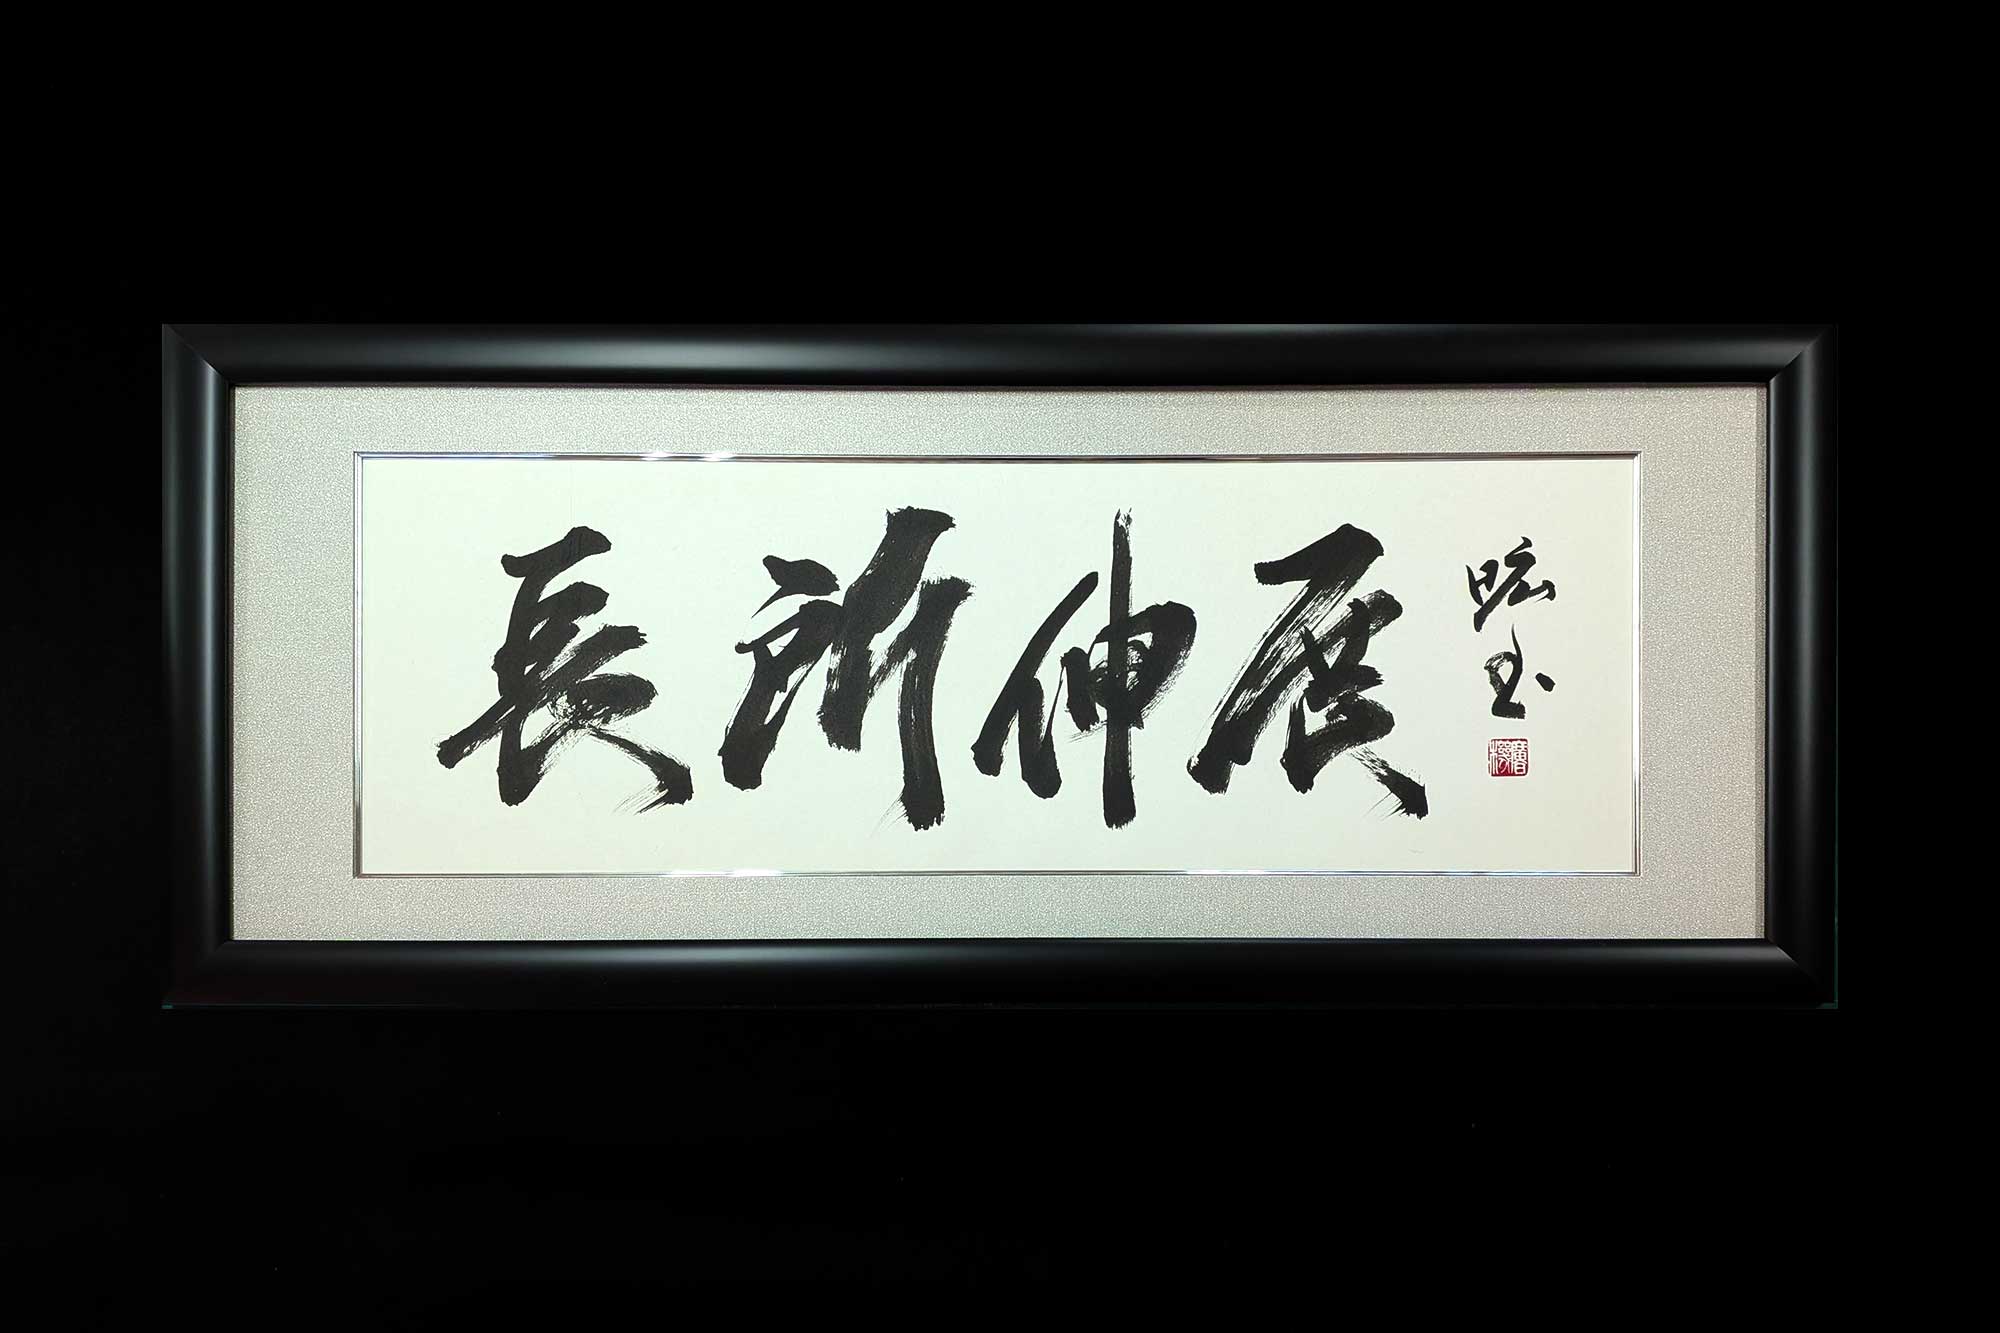 長所伸展
昿玉